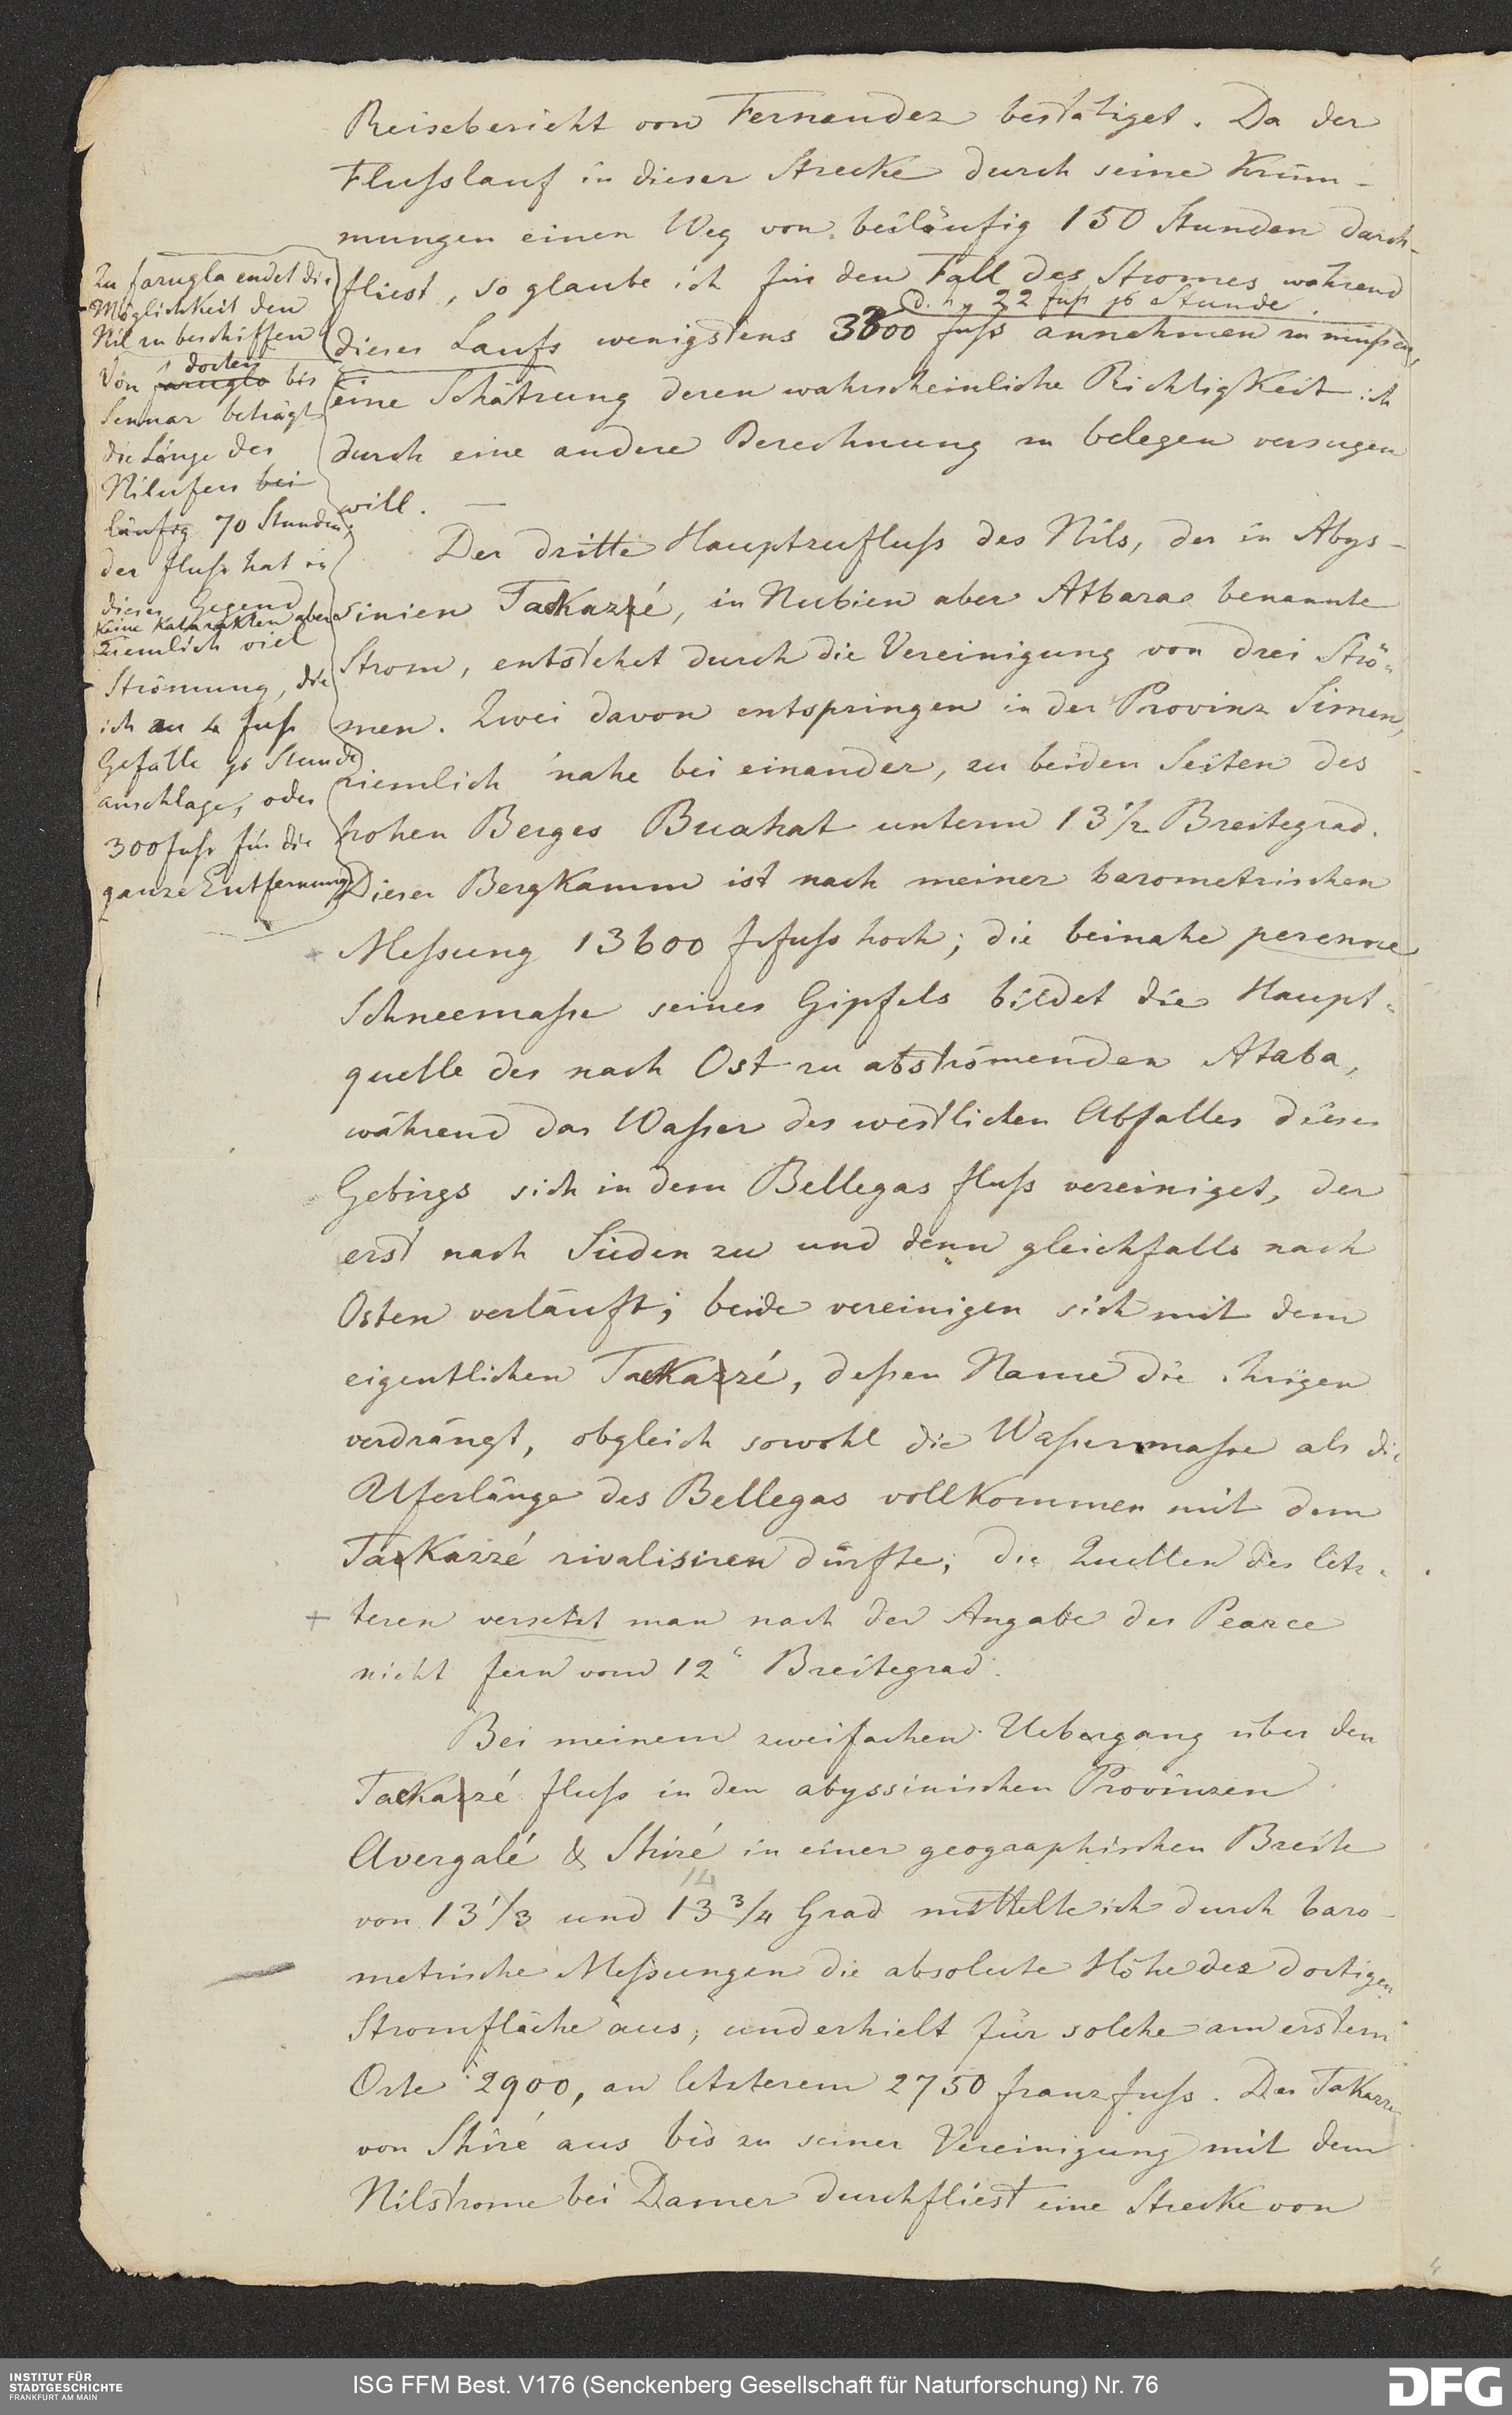 Reisebericht von Fernandez bestätiget. Da der
Flußlauf in dieser Strecke durch seine Krüm-
mungen einen Weg von beiläufig 150 Stunden durch-
fliest, so glaube ich für den Fall des Stromes während
d. h. 22 fuß p Stunde
dieses Laufs wenigstens 3300 fuß annehmen zu müßen,
eine Schätzung deren wahrscheinliche Richtigkeit ich
durch eine andere Berechnung zu belegen versugen
will. —
Zu farugla endet die
Möglichkeit den
Nil zu beschiffen
dorten
Von farugla bis
Sennar beträgt
die Länge des
Nilufers bei
läufig 70 Stunden;
der fluß hat in
dieser Gegend
keine Katarakten aber
ziemlich viel
Strömung, die
ich zu 4 fuß
Gefälle p Stunde
anschlage, oder
300 fuß für die
ganze Entfernung
Der dritte Hauptzufluß des Nils, der in Abys-
sinien Tackazzé, in Nubien aber Atbara benannte
Strom, entstehet durch die Vereinigung von drei Strö-
men. Zwei davon entspringen in der Provinz Simen,
ziemlich nahe bei einander, zu beiden Seiten des
hohen Berges Buahat unterm 13 1/2 Breitegrad.
Dieser Bergkamm ist nach meiner barometrischen
Meßung 13600 f fuß hoch; die beinahe perenne
Schneemaße seines Gipfels bildet die Haupt-
quelle des nach Ost zu abströmenden Ataba,
während das Waßer des westlichen Abfalles dieses
Gebirgs sich in dem Bellegas fluß vereiniget, der
erst nach Süden zu und denn gleichfalls nach
Osten verläuft; beide vereinigen sich mit dem
eigentlichen Tackazzé, deßen Name die ihrigen
verdrängt, obgleich sowohl die Waßermaße als die
Uferlänge des Bellegas vollkommen mit dem
Tackazzé rivalisiren dürfte; die Quellen des letz-
teren versetzt man nach der Angabe des Pearce
nicht fern vom 12° Breitegrad.
Bei meinem zweifachen Uebergang über den
Tackazzé fluß in den abyssinischen Provinzen
Avergalé & Shiré in einer geograaphischen Breite
14
von 13 1/3 und 13 3/4 Grad mittelte ich durch baro-
metrische Meßungen die absolute Höhe der dortigen
Stromfläche aus, und erhielt für solche am erstem
Orte 2900, an letzterem 2750 franz fuß. Der Takazze
von Shiré aus bis zu seiner Vereinigung mit dem
Nilstrome bei Damer durchfliest eine Strecke von
4
INSTITUT FÜR
STADTGESCHICHTE
FRANKFURT AM MAIN
ISG FFM Best. V176 (Senckenberg Gesellschaft für Naturforschung) Nr. 76
DFG